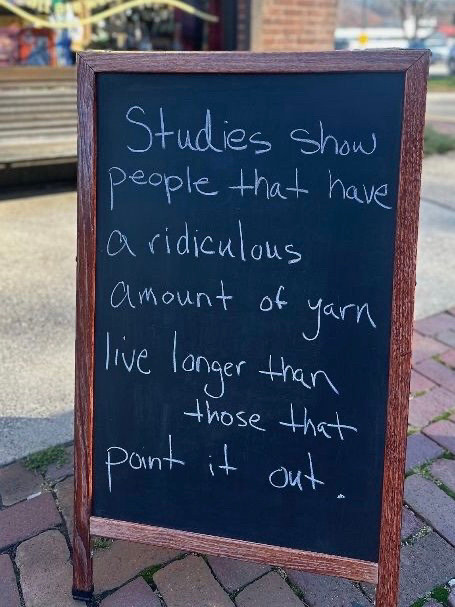 Studies show
people that have
a ridiculous
amount of yarn
live longer than
those that
point it out.